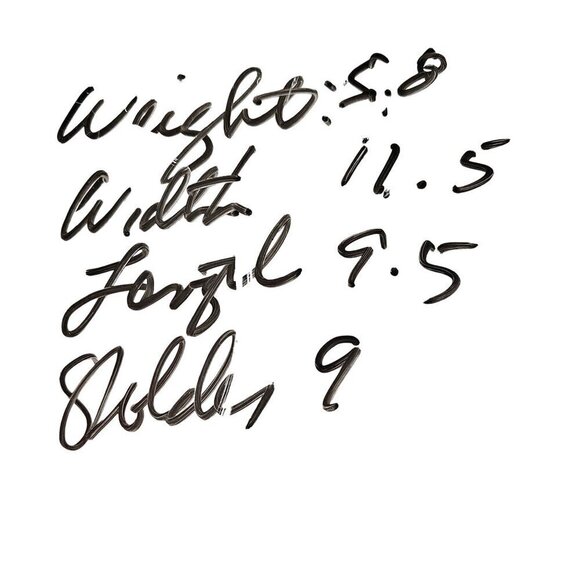 Weight: 5.8
Width 11.5
Length 9.5
Sholder 9